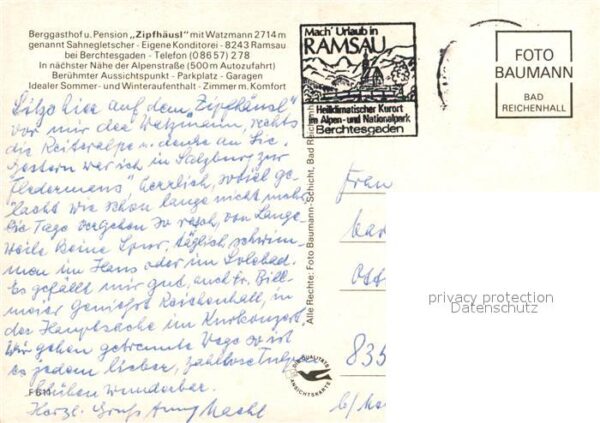 Berggasthof u. Pension „Zipfhäusl" mit Watzmann 2714 m
genannt Sahnegletscher - Eigene Konditorei - 8243 Ramsau
bei Berchtesgaden - Telefon (0 86 57) 278
In nächster Nähe der Alpenstraße (500 m Autozufahrt)
Berühmter Aussichtspunkt - Parkplatz - Garagen
Idealer Sommer- und Winteraufenthalt - Zimmer m. Komfort
Sitze hier auf dem „Zipfhäusl"
vor mir der Watzmann, rechts
die Reiteralpe u. denke an Sie.
Gestern war ich in Salzburg zur
„Fledermaus", herrlich, soviel ge-
lacht wie schon lange nicht mehr.
Die Tage vergehen so rasch, von Lange-
weile keine Spur, täglich schwim-
men im Haus oder im Solebad.
Es gefällt mir gut, auch Fr. Bill-
meier genießt Reichenhall, in
der Hauptsache im Kurkonzert.
Wir gehen getrennte Wege so ist
es jedem lieber, zahllose
wunderbar.
Herzl. Gruß Anny
F 611
Alle Rechte: Foto Baumann-Schicht, Bad Reichenhall
Mach' Urlaub in
RAMSAU
Heilklimatischer Kurort
im Alpen- und Nationalpark
Berchtesgaden
FOTO
BAUMANN
BAD
REICHENHALL
Frau
835
QUALITÄTS
ANSICHTSKARTE
privacy protection
Datenschutz